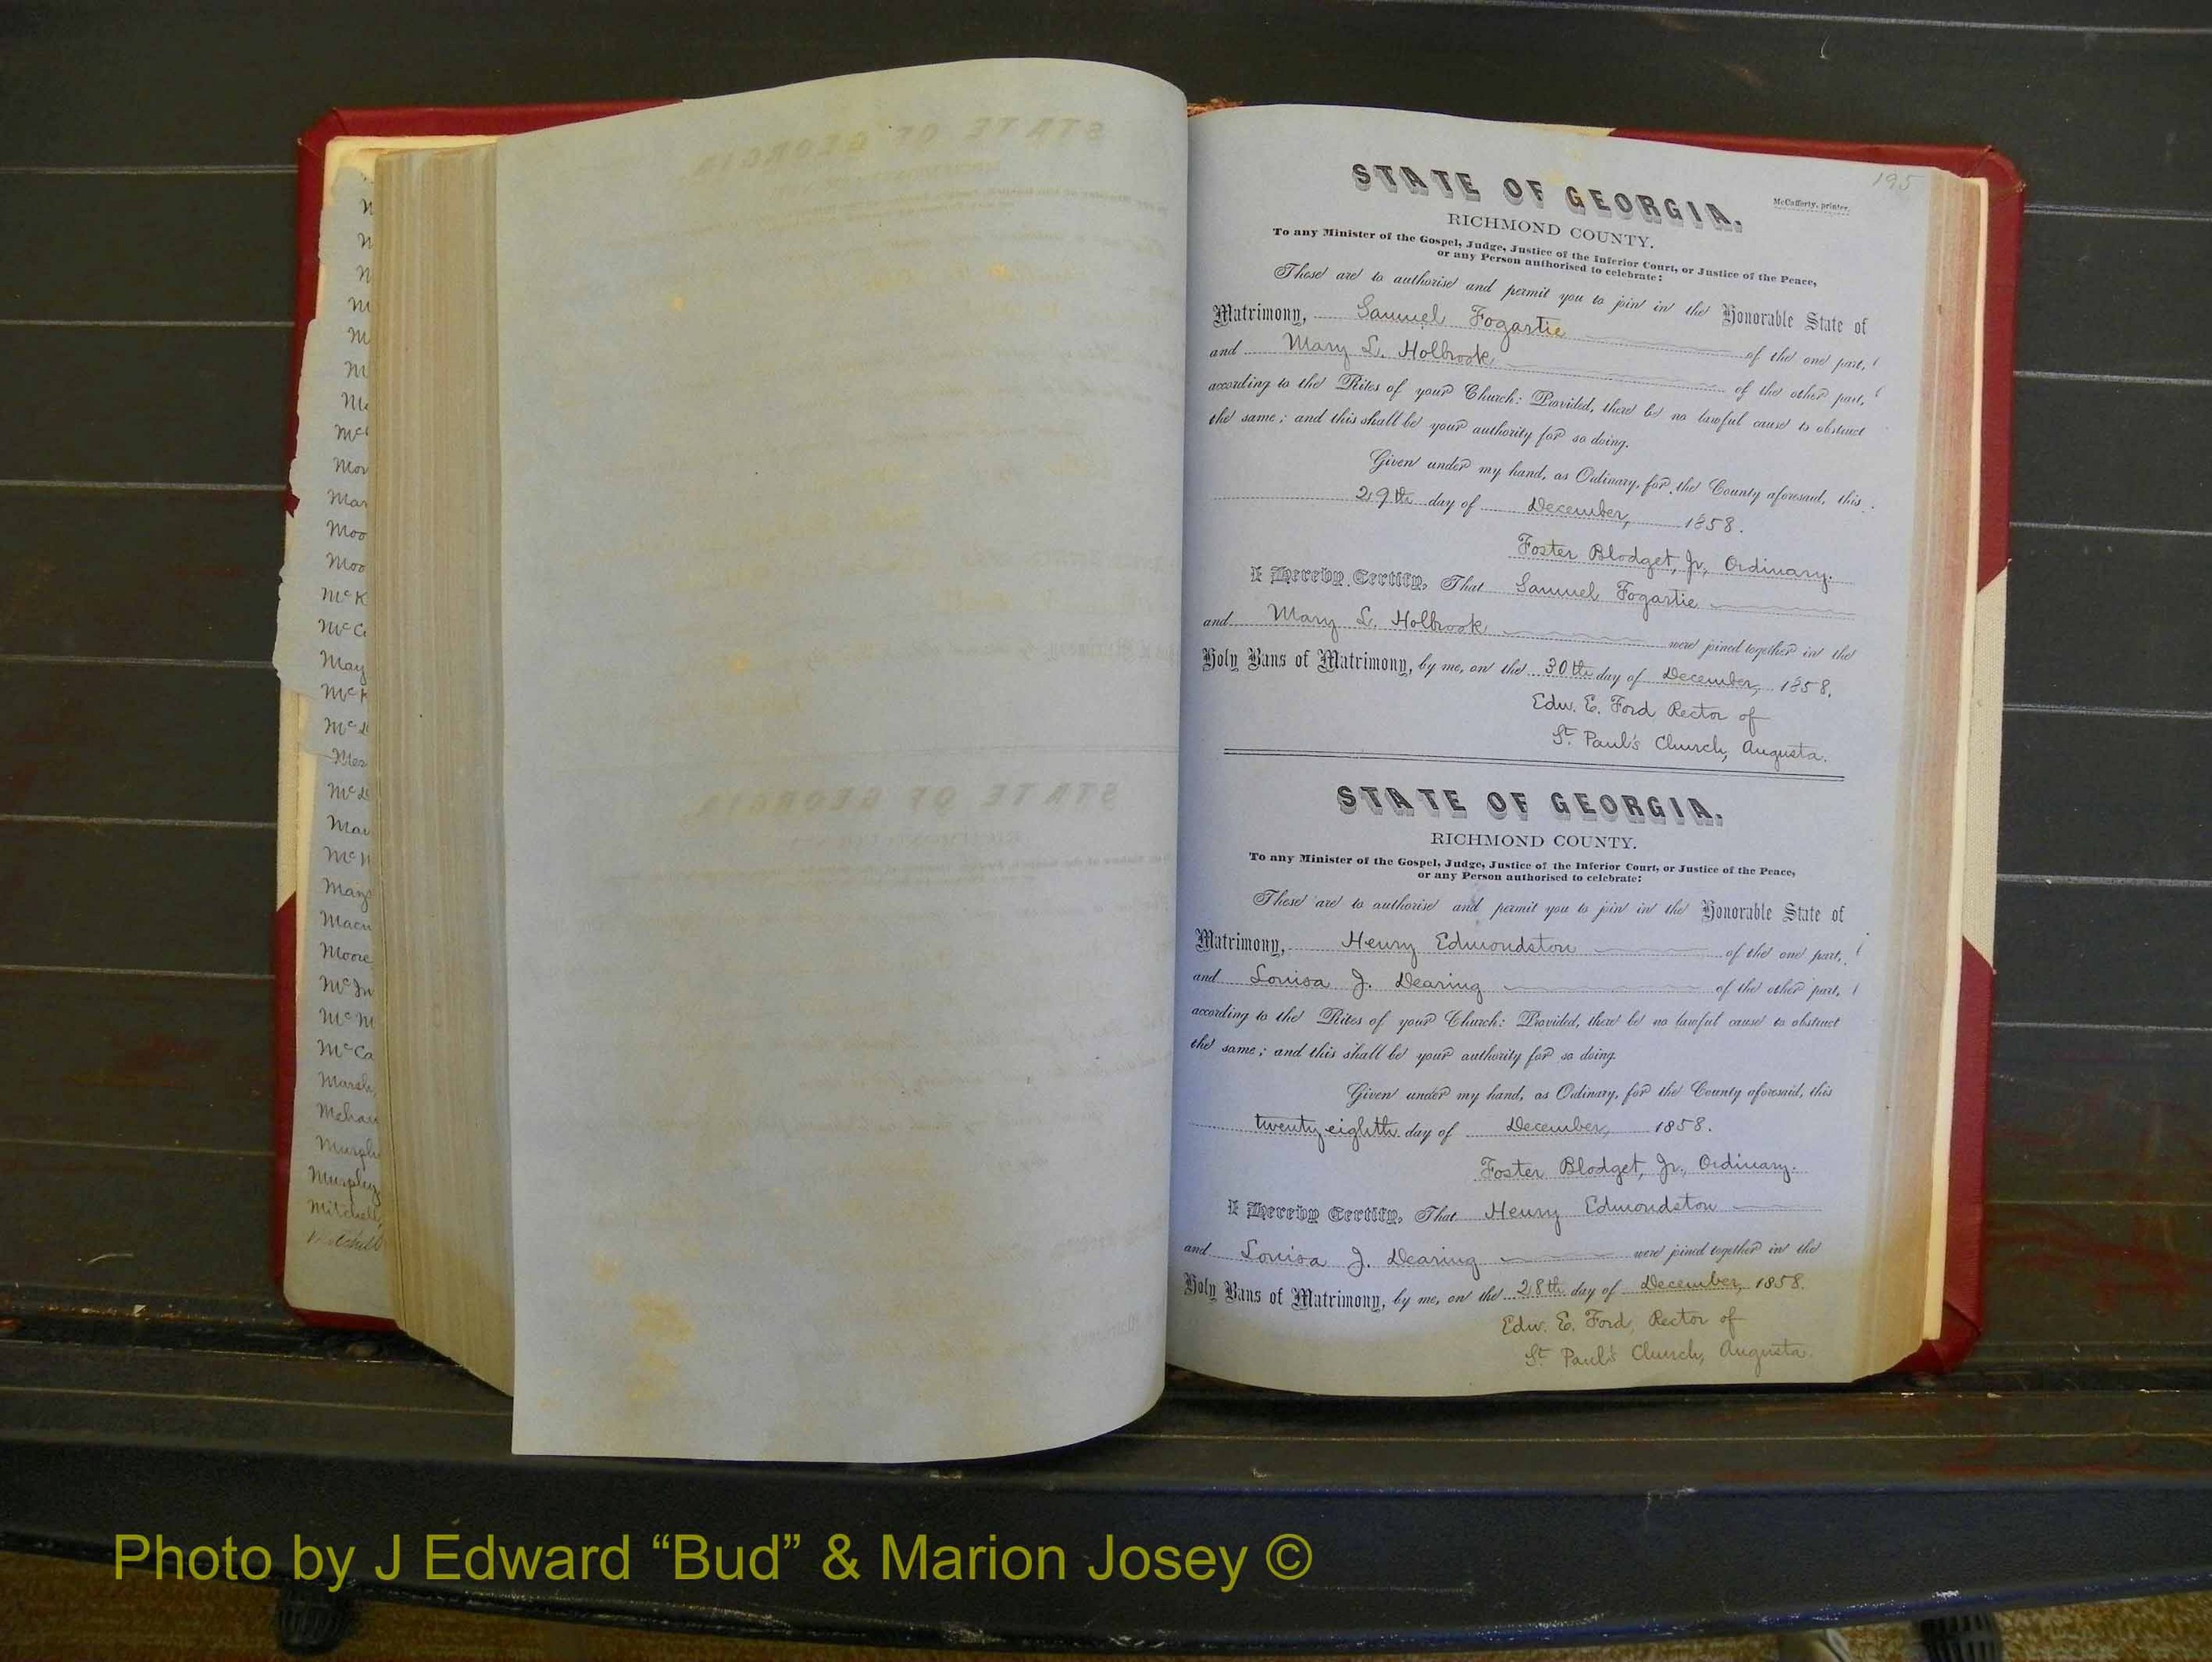 195
STATE OF GEORGIA.
McCafferty, printer.
RICHMOND COUNTY.
To any Minister of the Gospel, Judge, Justice of the Inferior Court, or Justice of the Peace,
or any Person authorised to celebrate:
These are to authorise and permit you to join in the Honorable State of
Matrimony, Samuel Fogartie of the one part,
and Mary L. Holbrook of the other part,
according to the Rites of your Church: Provided, there be no lawful cause to obstruct
the same; and this shall be your authority for so doing.
Given under my hand, as Ordinary, for the County aforesaid, this
29th day of December, 1858.
Foster Blodget, Jr, Ordinary.
I Hereby Certify, That Samuel Fogartie
and Mary L. Holbrook were joined together in the
Holy Bans of Matrimony, by me, on the 30th day of December, 1858.
Edw. E. Ford Rector of
St. Paul's Church, Augusta.
STATE OF GEORGIA.
RICHMOND COUNTY.
To any Minister of the Gospel, Judge, Justice of the Inferior Court, or Justice of the Peace,
or any Person authorised to celebrate:
These are to authorise and permit you to join in the Honorable State of
Matrimony, Henry Edmondston of the one part,
and Louisa J. Dearing of the other part,
according to the Rites of your Church: Provided, there be no lawful cause to obstruct
the same; and this shall be your authority for so doing.
Given under my hand, as Ordinary, for the County aforesaid, this
twenty eighth day of December, 1858.
Foster Blodget, Jr., Ordinary.
I Hereby Certify, That Henry Edmondston
and Louisa J. Dearing were joined together in the
Holy Bans of Matrimony, by me, on the 28th day of December, 1858.
Edw. E. Ford, Rector of
St. Paul's Church, Augusta.
Photo by J Edward “Bud” & Marion Josey ©